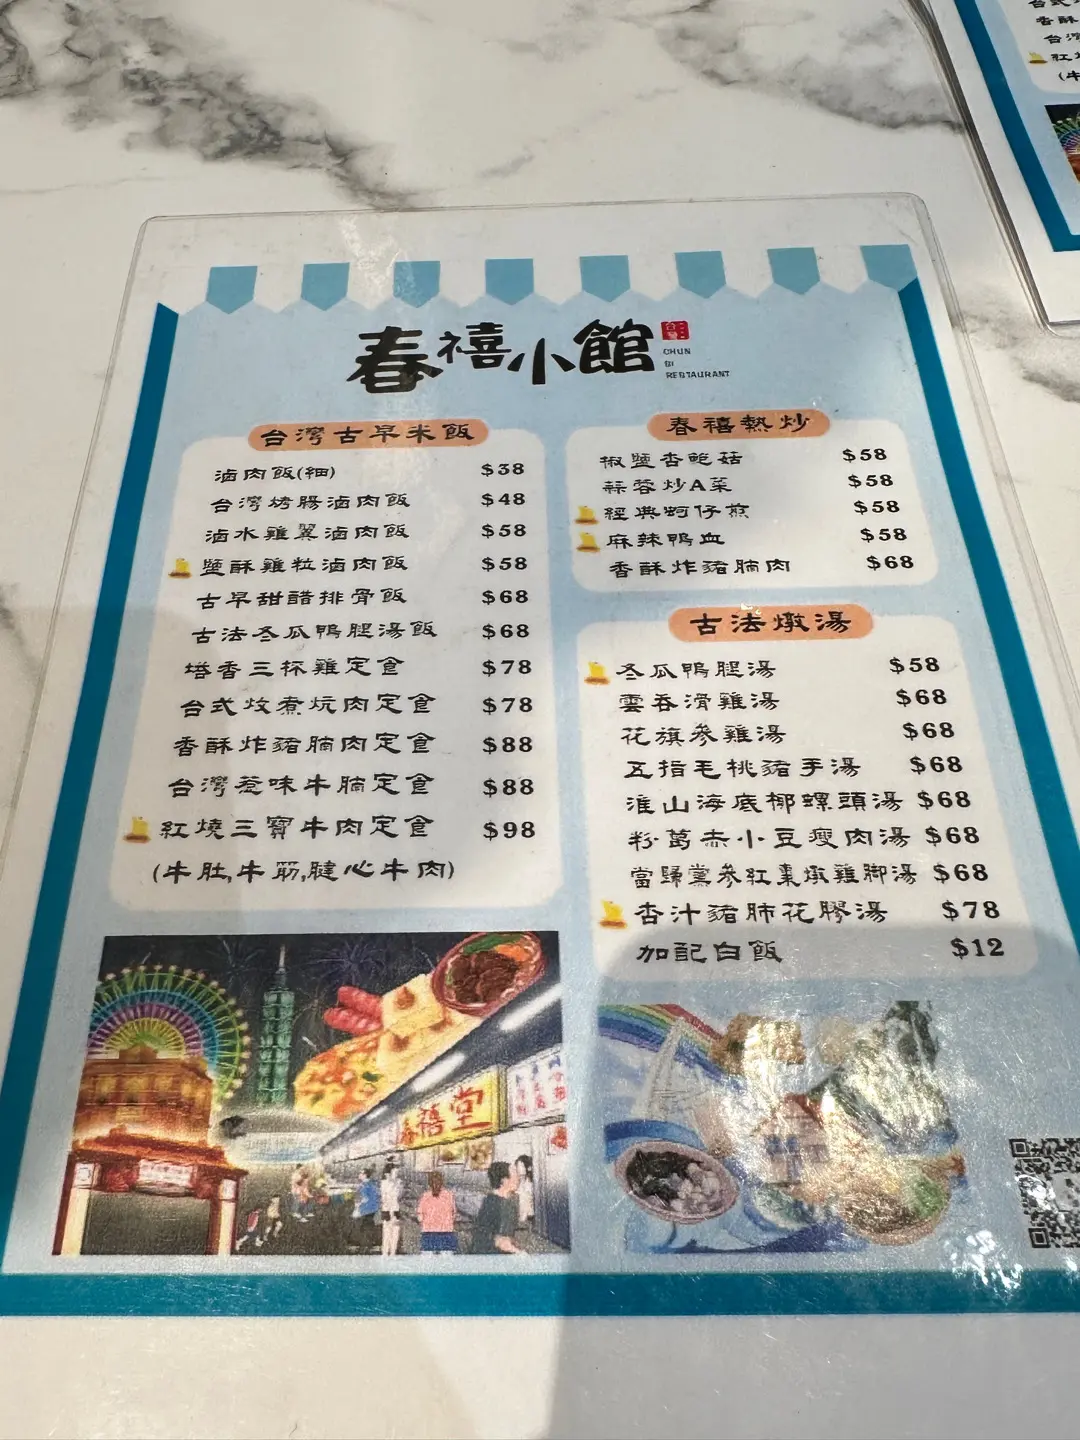 春禧小館
台灣
CHUN
RESTAURANT
台灣古早米飯
滷肉飯(細) $38
台灣烤腸滷肉飯 $48
滷水雞翼滷肉飯 $58
鹽酥雞粒滷肉飯 $58
古早甜醋排骨飯 $68
古法冬瓜鴨腿湯飯 $68
塔香三杯雞定食 $78
台式炆煮炕肉定食 $78
香酥炸豬腩肉定食 $88
台灣惹味牛腩定食 $88
紅燒三寶牛肉定食 $98
(牛肚,牛筋,腱心牛肉)
春禧熱炒
椒鹽杏鮑菇 $58
蒜蓉炒A菜 $58
經典蚵仔煎 $58
麻辣鴨血 $58
香酥炸豬腩肉 $68
古法燉湯
冬瓜鴨腿湯 $58
雲吞滑雞湯 $68
花旗參雞湯 $68
五指毛桃豬手湯 $68
淮山海底椰螺頭湯 $68
粉葛赤小豆瘦肉湯 $68
當歸黨參紅棗燉雞腳湯 $68
杏汁豬肺花膠湯 $78
加配白飯 $12
春禧堂